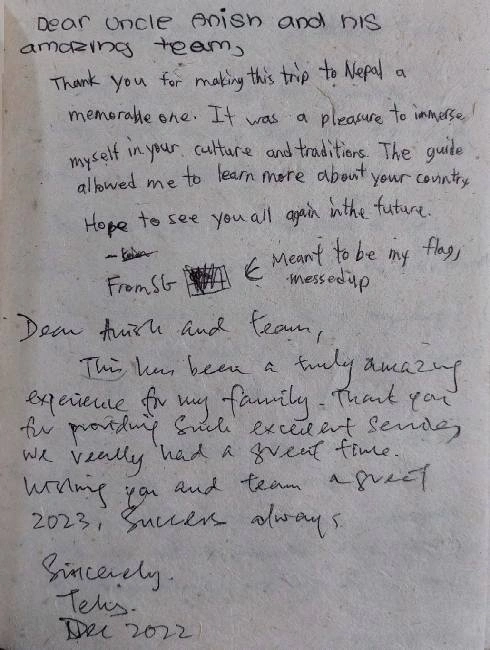 Dear uncle Anish and his
amazing team,
Thank you for making this trip to Nepal a
memorable one. It was a pleasure to immerse
myself in your culture and traditions. The guide
allowed me to learn more about your country
Hope to see you all again in the future.
From SG ← Meant to be my flag,
messed up
Dear Anish and team,
This has been a truly amazing
experience for my family. Thank you
for providing such excellent service,
we really had a great time.
Wishing you and team a great
2023, Success always.
Sincerely.
Dec 2022